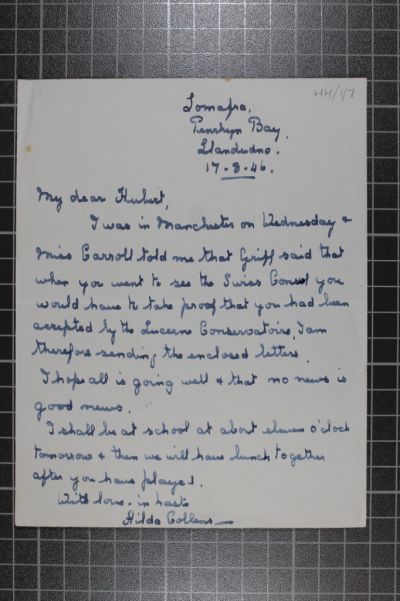 HH/1/7
Penrhyn Bay,
Llandudno.
17.8.46.
My dear Hubert,
I was in Manchester on Wednesday &
Miss Carroll told me that Griff said that
when you went to see the Swiss Consul you
would have to take proof that you had been
accepted by the Lucerne Conservatoire, I am
therefore sending the enclosed letters.
I hope all is going well & that no news is
good news.
I shall be at school at about eleven o'clock
tomorrow & then we will have lunch together
after you have played.
With love - in haste
Hilda Collens